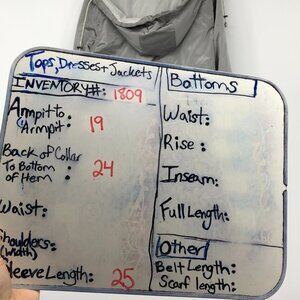 Tops, Dresses + Jackets
INVENTORY#: 1809
Armpit to
Armpit: 19
Back of Collar
To Bottom
of Hem: 24
Waist:
Shoulders:
(Width)
Sleeve Length: 25
Bottoms
Waist:
Rise:
Inseam:
Full Length:
Other
Belt Length:
Scarf length: